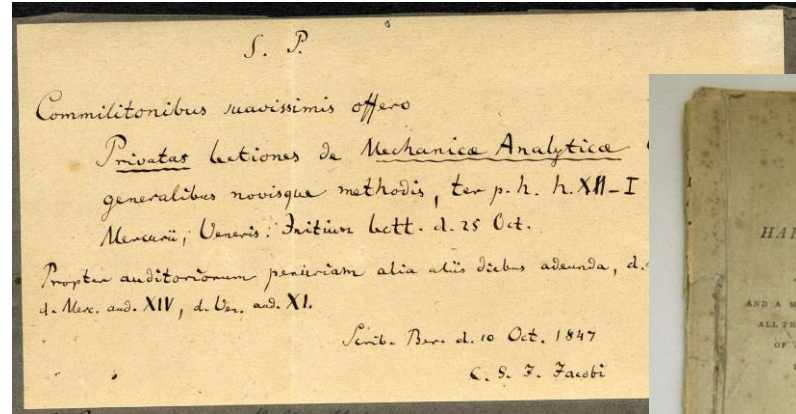 S. P.
Commilitonibus suavissimis offero
Privatas lectiones de Mechanicæ Analyticæ
generalibus novisque methodis, ter p. h. h. XII–I
Mercurii, Veneris. Initium lectt. d. 25 Oct.
Propter auditoriorum penuriam alia aliis diebus adeunda, d.
d. Merc. aud. XIV, d. Ven. aud. XI.
Scrib. Ber. d. 10 Oct. 1847
C. G. J. Jacobi
HAI
AND A M
ALL TH
OF